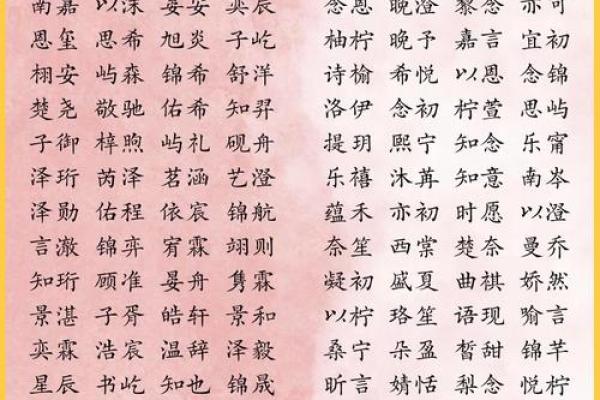 南嘉 以沫 晏安 奕辰 念恩 晚澄 黎念 亦可
恩玺 思希 旭炎 子屹 柚柠 晚予 嘉言 宜初
栩安 屿森 锦希 舒洋 诗榆 希悦 以恩 念锦
楚尧 敬驰 佑希 知羿 洛伊 念初 柠萱 思屿
子御 梓煦 屿礼 砚舟 提玥 熙宁 知念 乐甯
泽珩 芮泽 茗涵 艺澄 乐禧 沐苒 知意 南岑
泽勋 佑程 依宸 锦航 蕴禾 亦初 时愿 以澄
言澈 锦弈 宥霖 翊则 奈笙 西棠 楚奈 曼乔
知珩 顾准 晏舟 隽霖 凝初 盛夏 曲祺 娇然
景湛 子胥 皓轩 景和 以柠 珞笙 语现 喻言
奕霖 浩宸 温辞 泽毅 桑宁 朵盈 皙甜 锦芊
星辰 书屹 知也 锦晟 昕言 婧恬 梨念 悦柠